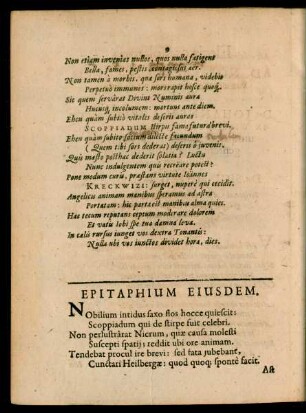 Non etiam invenias ullos, quos nulla fatigent
Bella, fames, pestis contagiosus aër.
Non tamen à morbis, quæ sors humana, videbis
Perpetuò immunes: mors rapit hosce quoq;
Sic quem servârat Divini Numinis aura
Hucusq; incolumem: mortuus ante diem.
Eheu quàm subitò vitales deseris auras
SCOPPIADUM stirps fama futura brevi.
Eheu quàm subitò solium dilecte
(Quem tibi sors dederat) deseris ô juvenis.
Quis mœsto posthac dederit solatia? Luctu
Nunc indulgentem quis recreare potest?
Pone modum curis, præstans virtute Ioannes
KRECKWIZI: surget, nuperè qui cecidit.
Angelicis animam manibus speramus ad astra
Portatam: hic parta est manibus alma quies.
Hæc tecum reputans ceptum moderare dolorem
Et vatis Iobi spe tua damna leva.
In cœlis rursus iunget vos dextra Tonantis:
Nulla ubi vos iunctos dividet hora, dies.
EPITAPHIUM EIUSDEM.
Nobilium intidus saxo flos hocce quiescit:
Scoppiadum qui de stirpe fuit celebri.
Non perlustrârat Nicrum, quæ causa molesti
Suscepti spatij: reddit ubi ore animam.
Tendebat procul ire brevi: sed fata jubebant,
Cunctari Heilbergæ: quod quoq; spontè facit.
Ast